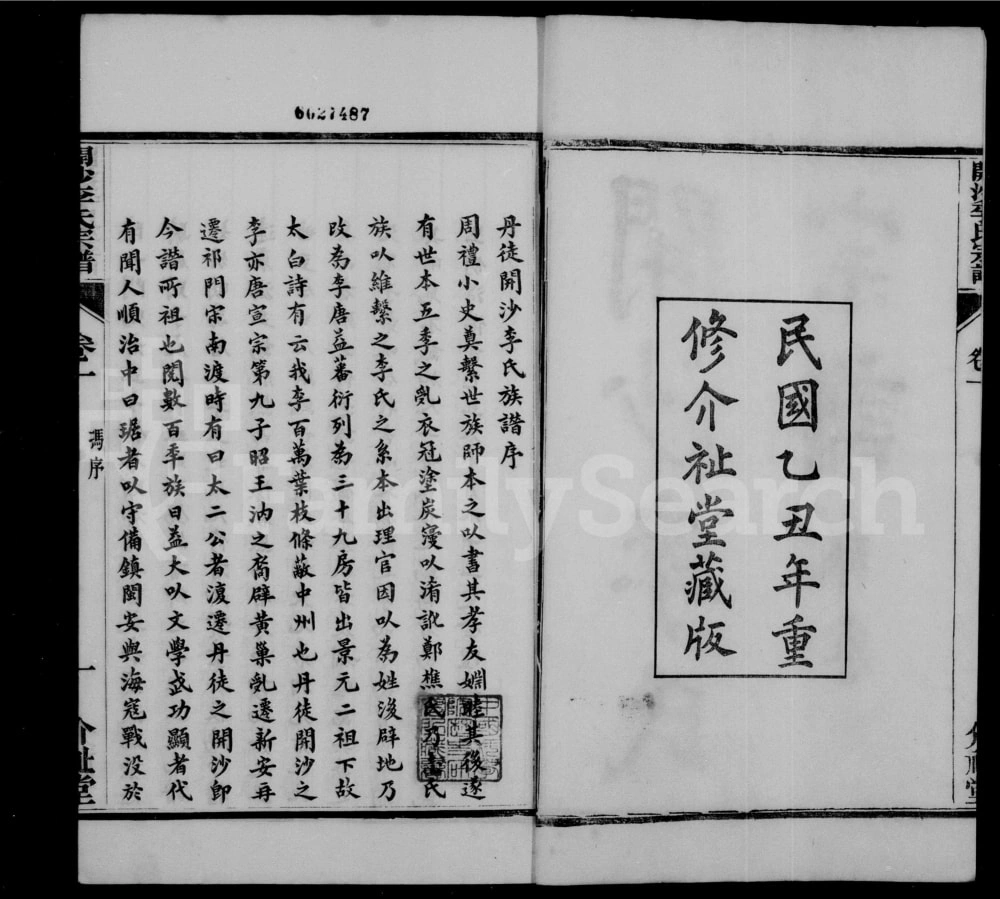 開沙李氏宗譜
卷一
民國乙丑年重
修介祉堂藏版
6027487
丹徒開沙李氏族譜序
周禮小史奠繫世族師本之以書其孝友婣睦其後遂
有世本五季之亂衣冠塗炭寖以淆訛鄭樵氏乃書氏
族以維繫之李氏之系本出理官因以為姓後辟地乃
改為李唐益蕃衍列為三十九房皆出景元二祖下故
太白詩有云我李百萬葉枝條蔽中州也丹徒開沙之
李亦唐宣宗第九子昭王汭之裔辟黃巢亂遷新安再
遷祁門宋南渡時有曰太二公者復遷丹徒之開沙卽
今譜所祖也閱數百年族日益大以文學武功顯者代
有聞人順治中曰琚者以守備鎮閩安與海寇戰沒於
開沙李氏宗譜
卷一
馮序
一
介祉堂
FamilySearch